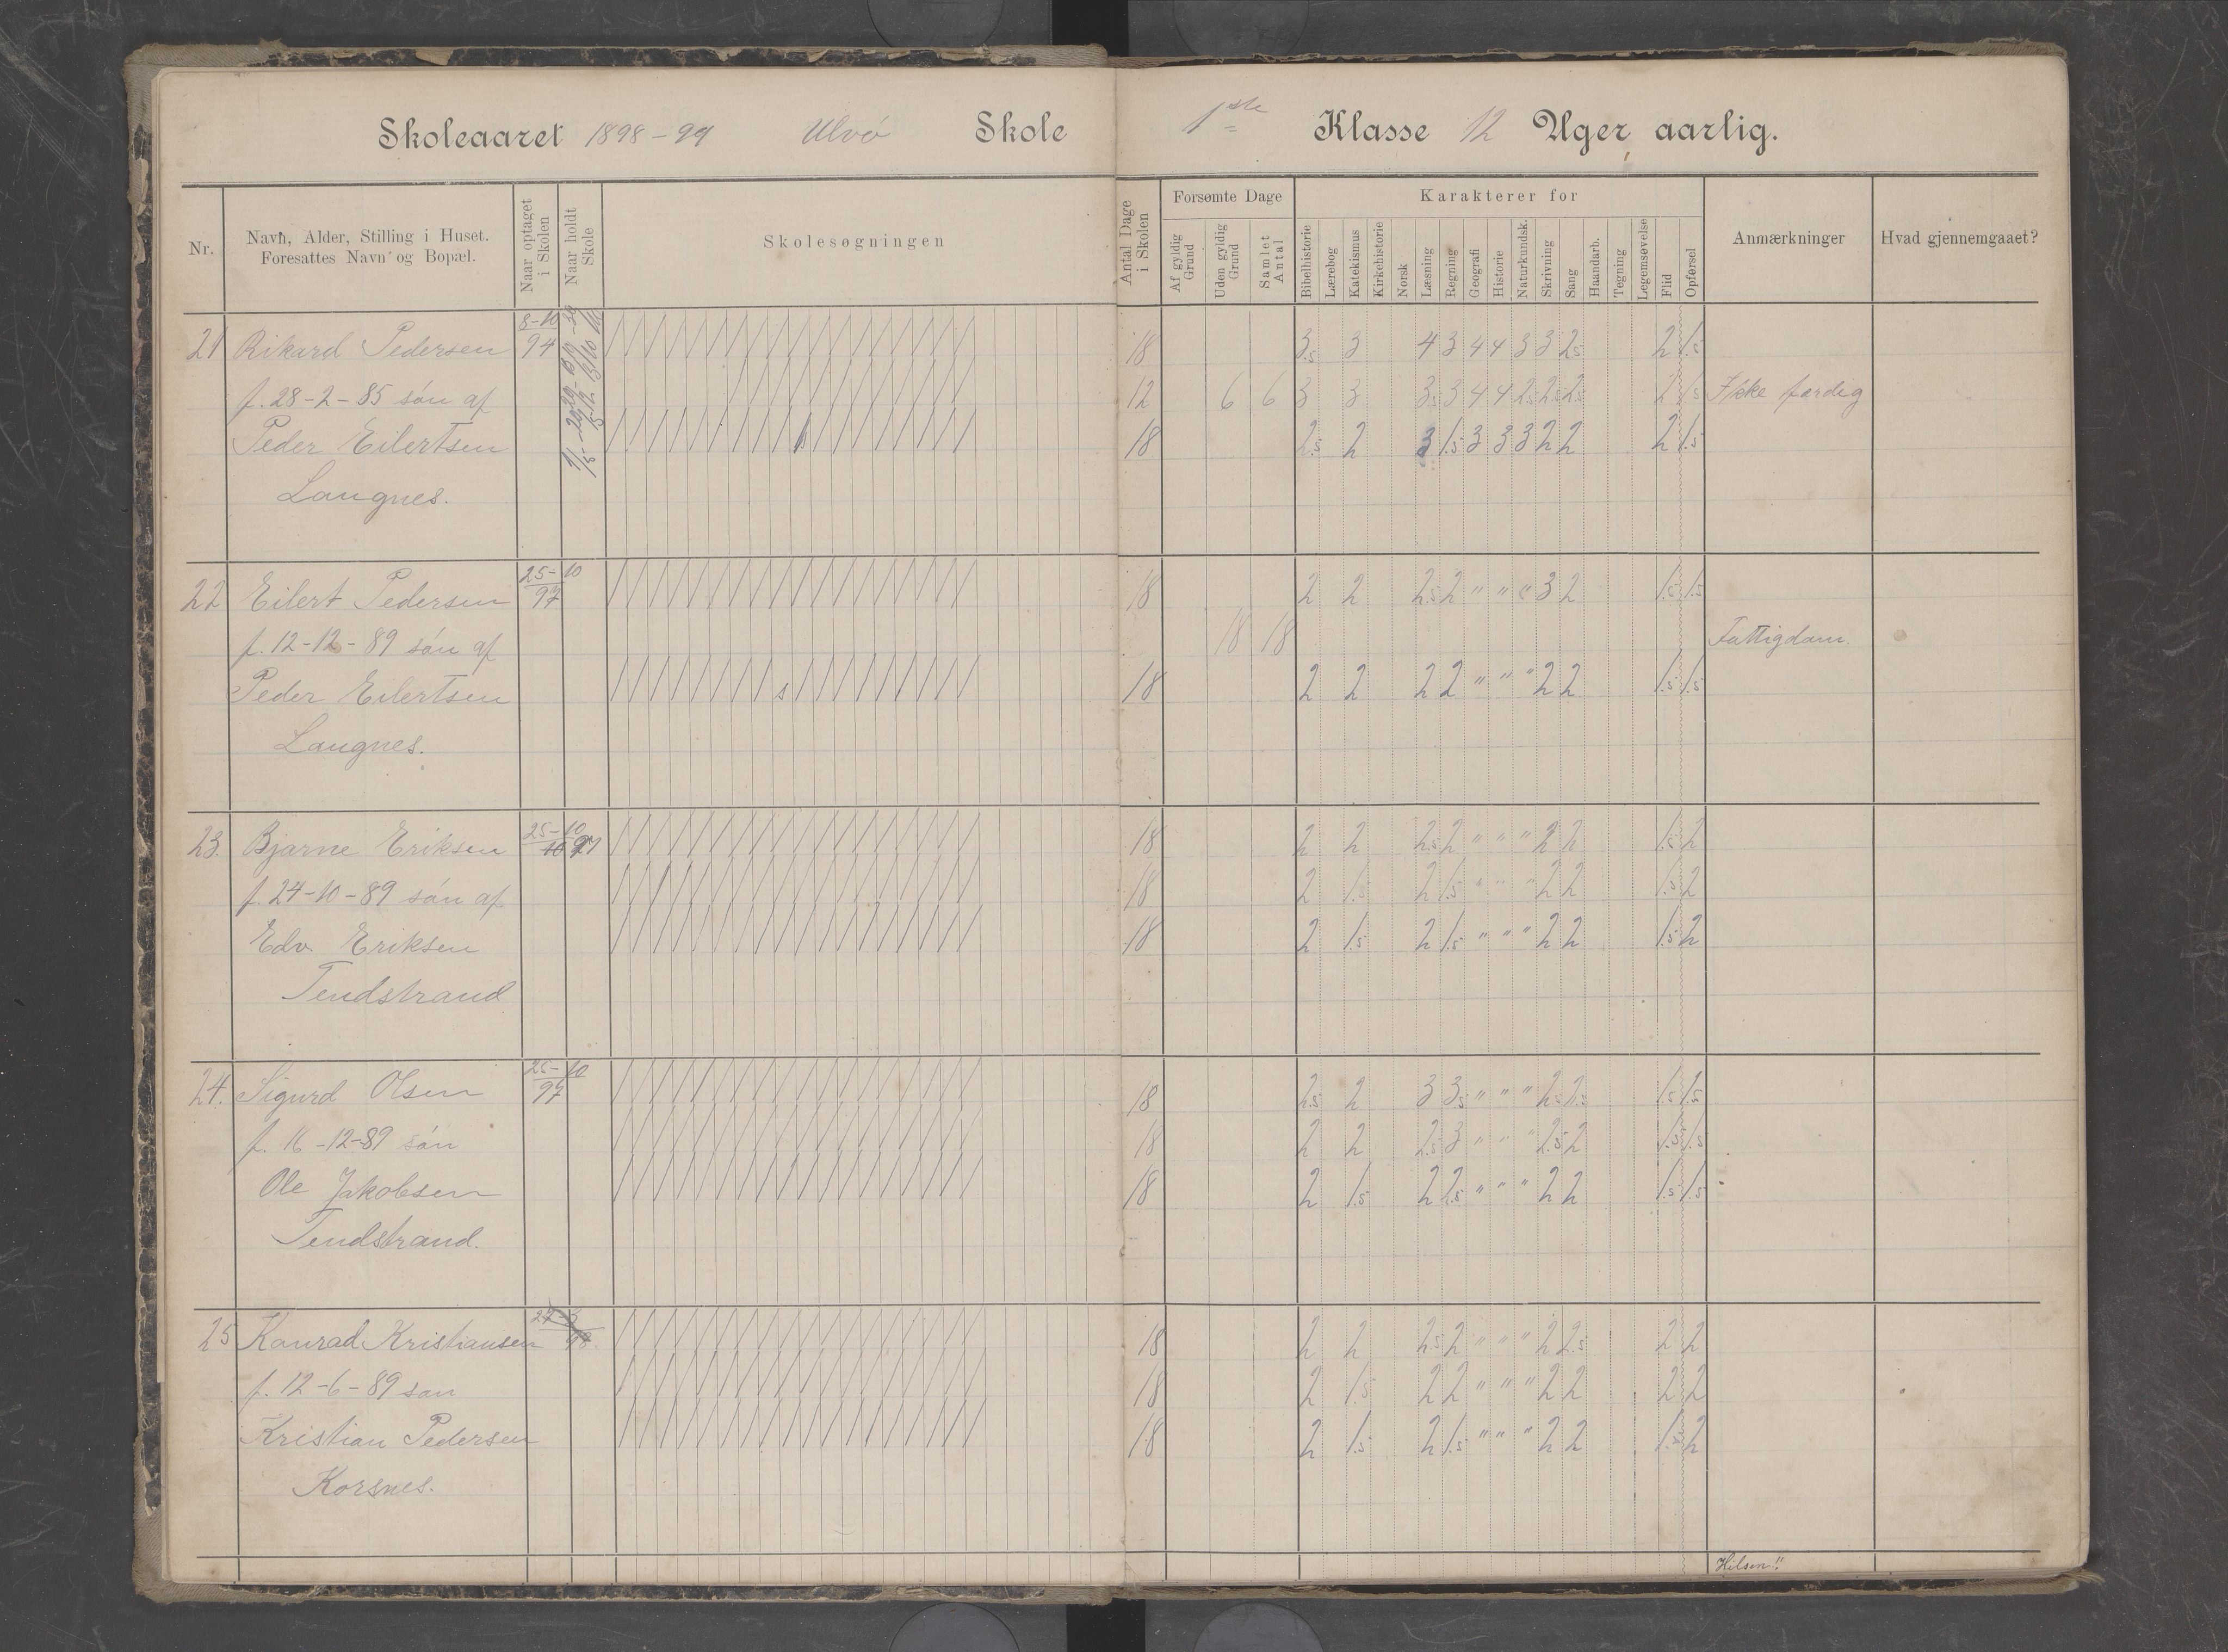 Skoleaaret 1898-99 Ulvö Skole 1ste Klasse 12 Uger aarlig.
Nr.
Navn, Alder, Stilling i Huset.
Foresattes Navn og Bopæl.
Naar optaget
i Skolen
Naar holdt
Skole
Skolesøgningen
Antal Dage
i Skolen
Forsømte Dage
Af gyldig
Grund
Uden gyldig
Grund
Samlet
Antal
Karakterer for
Bibelhistorie
Lærebog
Katekismus
Kirkehistorie
Norsk
Læsning
Regning
Geografi
Historie
Naturkundsk.
Skrivning
Sang
Haandarb.
Tegning
Legemsøvelse
Flid
Opførsel
Anmærkninger
Hvad gjennemgaaet?
8-10
21 Rikard Pedersen 94 18 3.5 3 4 3 4 4 3 3 2.5 2 1.5
f. 28-2-85 sön af 12 6 6 3 3 3.5 3 4 4 2.5 2.5 2.5 2 1.5 Ikke færdig
Peder Eilertsen 18 2.5 2 3 1.5 3 3 3 2 2 2 1.5
Langnes.
25-10
22 Eilert Pedersen 97 18 2 2 2.5 2 " " " 3 2 1.5 1.5
f. 12-12-89 sön af 18 18 Fattigdom.
Peder Eilertsen s 18 2 2 2 2 " " " 2 2 1.5 1.5
Langnes.
25-10
23. Bjarne Eriksen 97 18 2 2 2.5 2 " " " 2 2 1.5 2
f. 24-10-89 sön af 18 2 1.5 2 1.5 " " " 2 2 1.5 2
Edv. Eriksen 18 2 1.5 2 1.5 " " " 2 2 1.5 2
Tendstrand
25-10
24. Sigurd Olsen 97 18 2.5 2 3 3.5 " " " 2.5 2.5 1.5 1.5
f. 16-12-89 sön 18 2 2 2.5 3 " " " 2.5 2 1.5 1.5
Ole Jakobsen 18 2 1.5 2 2.5 " " " 2 2 1.5 1.5
Tendstrand.
25 Konrad Kristiansen 98 18 2 2 2.5 2 " " " 2 2.5 2 2
f. 12-6-89 sön 18 2 1.5 2 2 " " " 2 2 2 2
Kristian Pedersen 18 2 1.5 2 1.5 " " " 2 2 1.5 2
Korsnes.
Hilsen!!